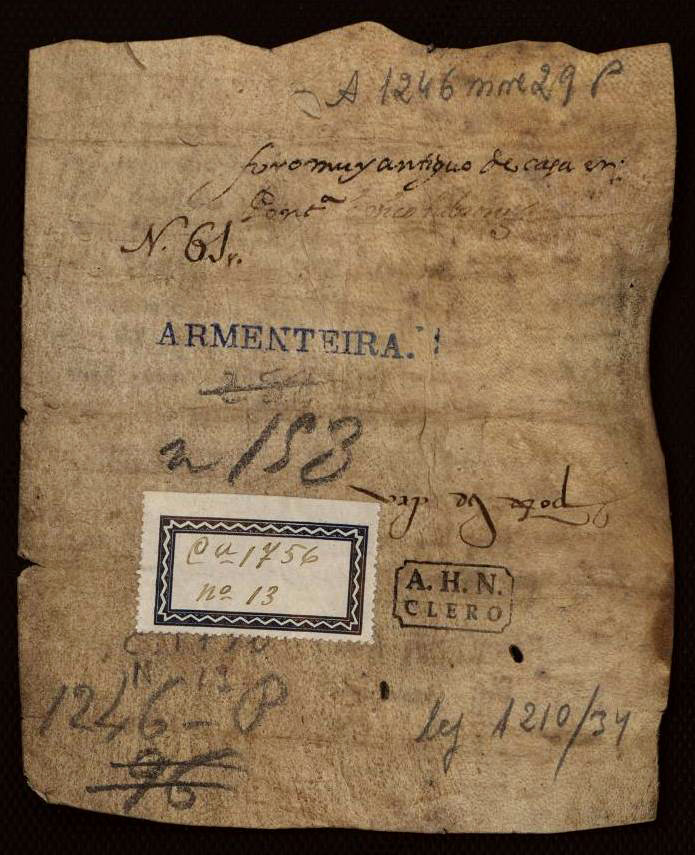 A 1246 nove 29 P
foro muy antiguo de casa en
Pontª
N. 61
ARMENTEIRA.
n 153
Cª 1756
nº 13
A. H. N.
CLERO
N 13
1246 - P
96
leg 1210/34